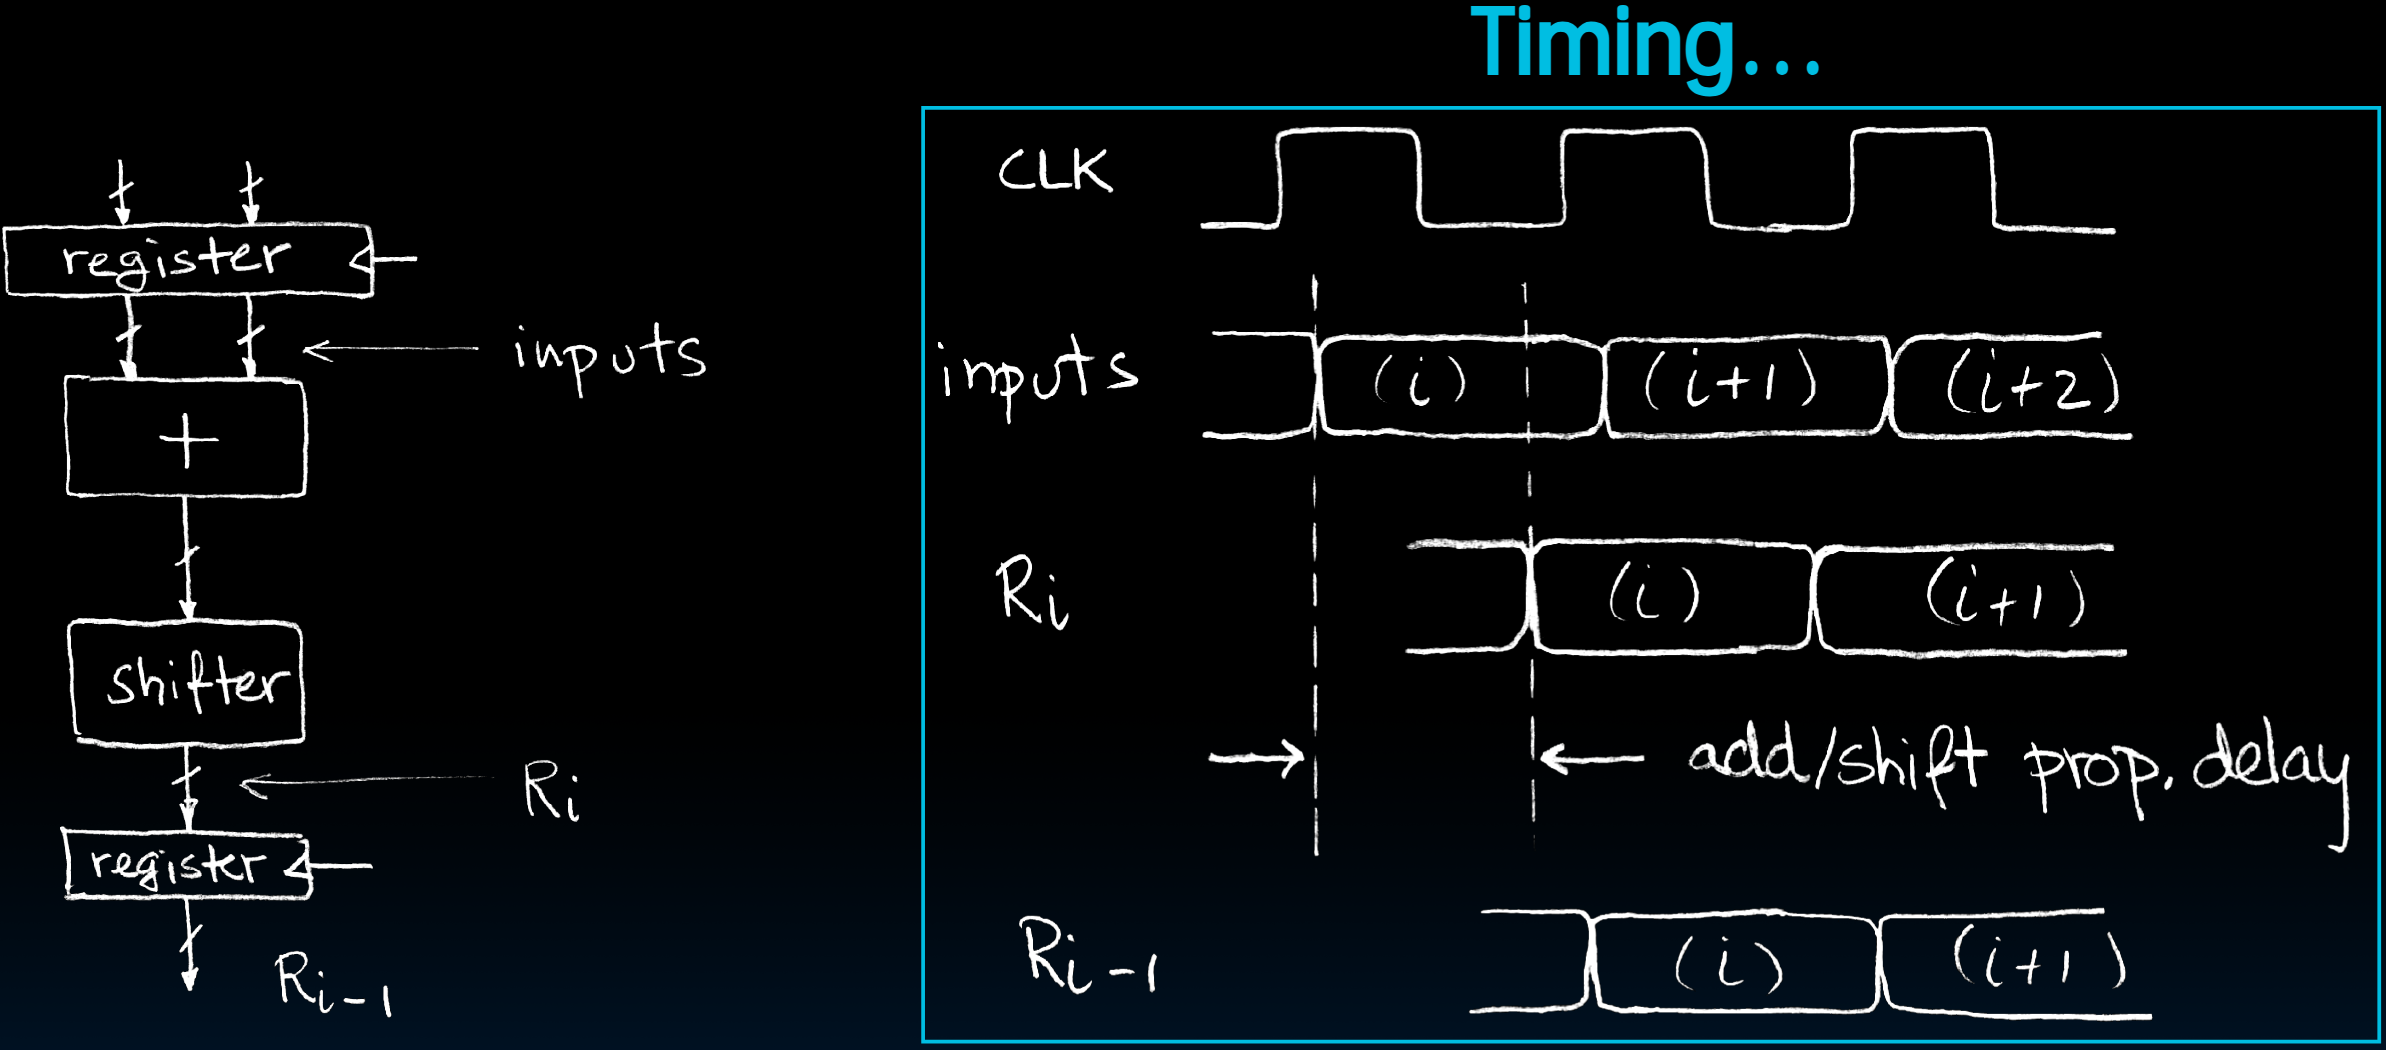 Timing...
register
inputs
+
shifter
Ri
register
Ri-1
CLK
inputs (i) (i+1) (i+2)
Ri (i) (i+1)
add/shift prop. delay
Ri-1 (i) (i+1)